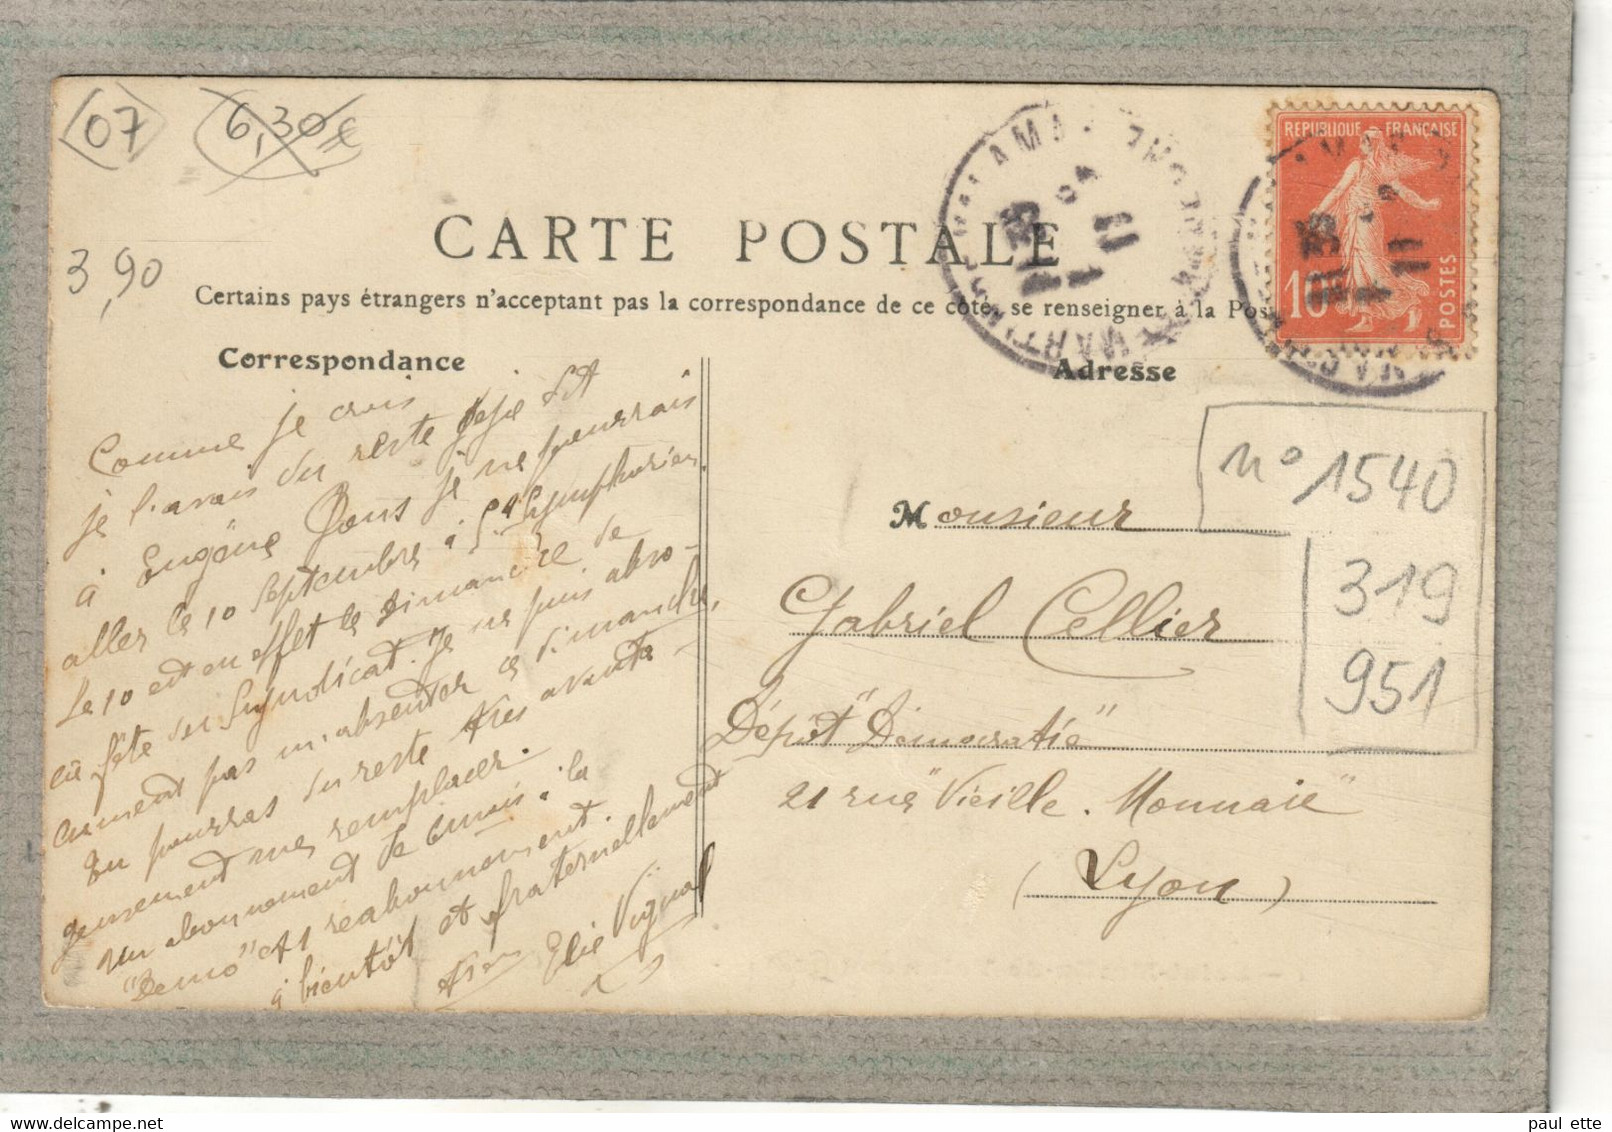 07
6,30€
3,90
CARTE POSTALE
Certains pays étrangers n'acceptent pas la correspondance de ce côté, se renseigner à la Pos
Correspondance
Adresse
REPUBLIQUE FRANÇAISE
10
POSTES
LAMA
11 35
11
MARTI
Comme je crois
je l'avais du reste déjà dit
à Eugène Pons je ne pourrais
aller le 10 septembre à St Symphorien.
Le 10 est en effet le Dimanche de
la fête du Syndicat. Je ne puis abso-
lument pas m'absenter ce dimanche,
Tu pourras du reste très avanta-
geusement me remplacer.
Un abonnement de 6 mois à la
"Démo" et 1 réabonnement.
à bientôt et fraternellement
Elie Vignal
Monsieur
Gabriel Cellier
Dépôt "Démocratie"
21 rue "Vieille. Monnaie"
(Lyon)
n° 1540
319
951
paul ette